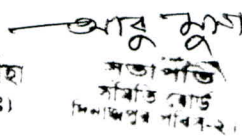 আবু মুসা
সভাপতি
সমিতি বোর্ড
দিনাজপুর পবিস-২